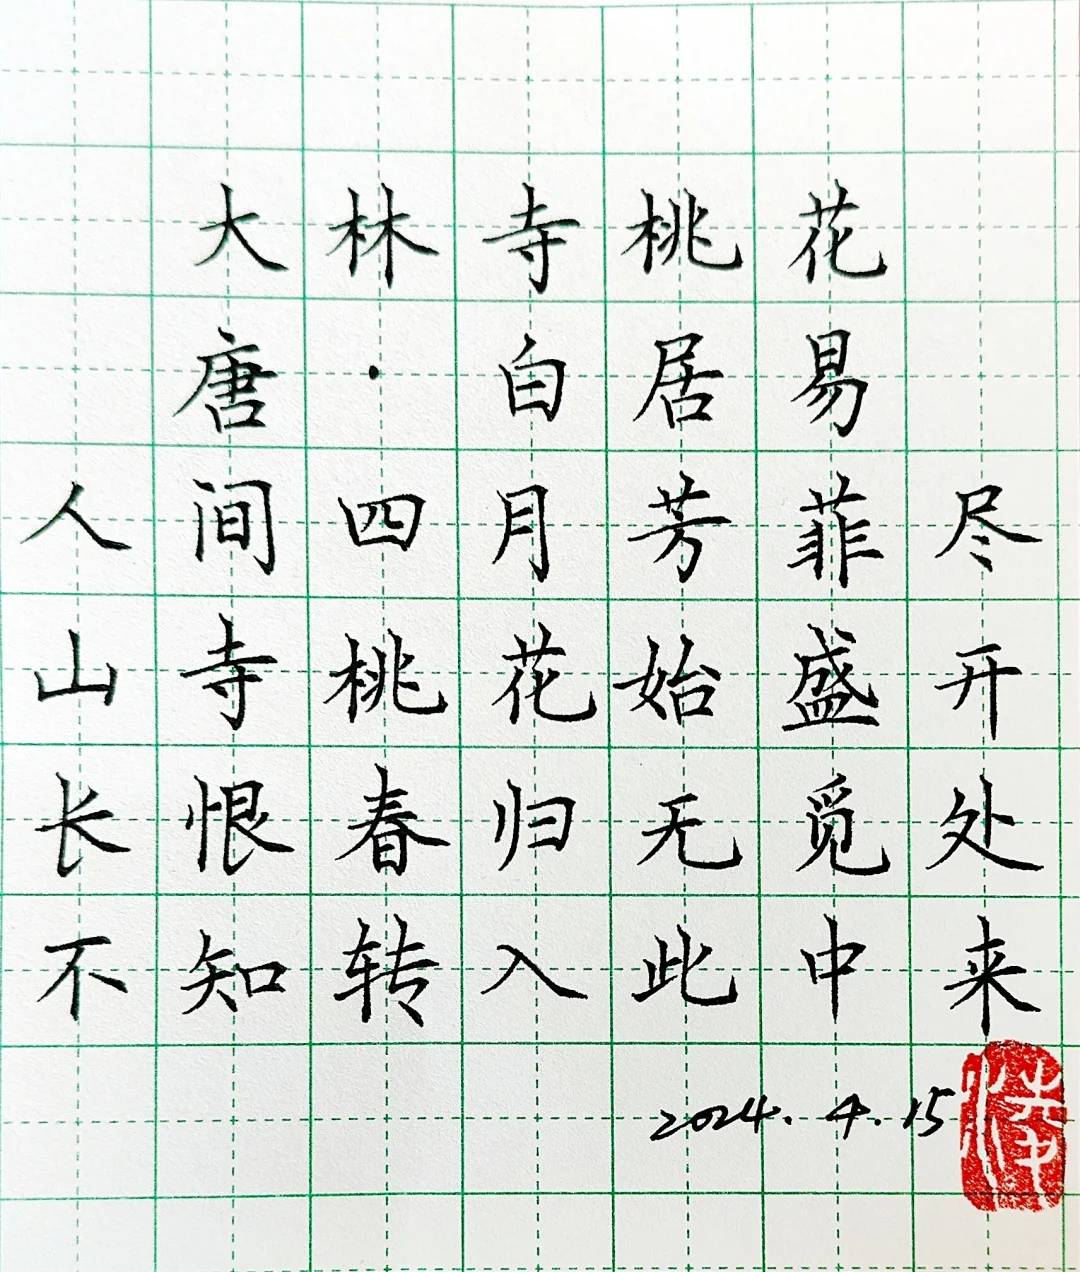 大林寺桃花
唐·白居易
人间四月芳菲尽
山寺桃花始盛开
长恨春归无觅处
不知转入此中来
2024.4.15